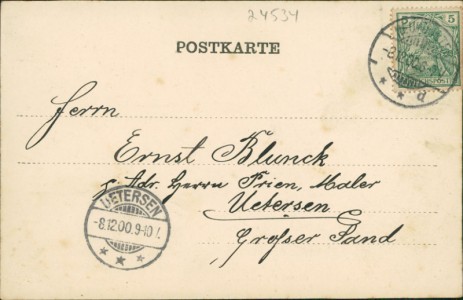 24534
POSTKARTE
5
Herrn
Ernst Blunck
Adr. Herrn Prien, Maler
Uetersen
Großer Sand
UETERSEN
-8.12.00.9-10